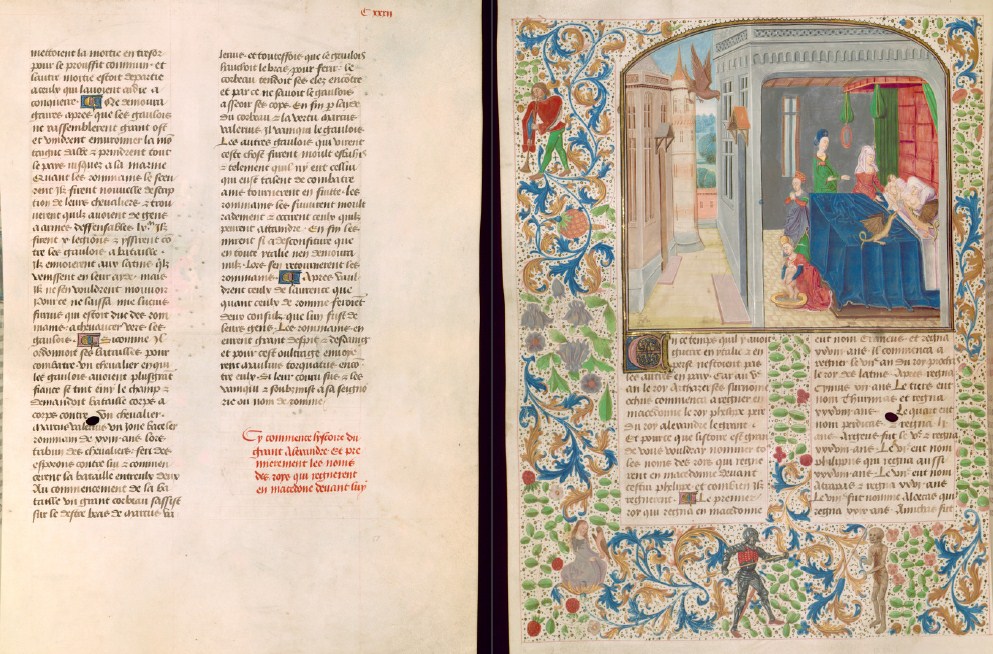 C xxxii
mettoient la moitie en tresor
pour le prouffit commun · et
lautre moitie estoit departie
a ceulx qui lauoient aidie a
conquerre · Ne demoura
gaires apres que les gaulois
ne rassemblerent grant ost
et vindrent enuironner la mon
taigne dalbe et prendrent tout
le pays iusques a la marine
Quant les rommains le sceu
rent Ilz firent nouuelle descrip
tion de leurs cheualiers et trou
uerent quilz auoient de gens
a armes deffensables
firent x legions et yssirent co
tre les gaulois a bataille ·
Ilz enuoierent aux latins quilz
venissent en leur aide · mais
Ilz ne sen vouldrent mouuoir
Pour ce ne laissa mie lucius
furius qui estoit duc des rom
mains a cheuaucer vers les
gaulois · Si comme Il
ordonnoit ses batailles pour
combatre vn cheualier en qui
les gaulois auoient plus grant
fiance se tint emy le champ et
demandoit bataille corps a
corps contre vn cheualier ·
Marcus valerius vn Jone bacheler
rommain de xxiii ans lors
tribun des cheualiers · feri des
esperons contre lui et commen
cerent la bataille entreulx deux
Au commencement de la ba
taille vn grant corbeau sassist
sur le destre bras de marcus va
lerius · et touteffois que le gaulois
haulsoit le bras pour ferir · le
corbeau tendoit ses elez encontre
et par ce ne sauoit le gaulois
asseoir ses cops · En fin p laide
du corbeau et la vertu marcus
valerius Il vainqui le gaulois ·
Les autres gaulois qui virent
ceste chose furent moult esbahis
et tellement quil ny eut cellui
qui eust talent de combatre
ains tournerent en fuitte · les
rommains les suiuirent moult
radement et occirent ceulx quilz
peurent attaindre · En fin les
mirent si a desconfiture que
en toute ytalie nen demoura
nulz · Lors sen retournerent les
rommains · Apres vaul
drent ceulx de laurence que
quant ceulx de romme feroient
deux consulz que lun fust de
leurs gens · Les rommains en
eurent grant despit et desdaing
et pour cest oultraige enuoye
rent manlius torquatus enco
tre eulx · Si leur couru sus et les
vainqui et soubzmist a la seigno
rie ou nom de romme
Cy commence lystoire du
grant alixandre · Et pre
mierement les noms
des roys qui regnerent
en macedone deuant luy
En ce temps quil y auoit
guerre en ytalie et en
perse
les autres en pays
an le roy Artaxerses surnome
ochus commenca a regner en
macedonne le roy phelipe pere
du roy alexandre le grant ·
Et pource que lystoire est gran
de vous vouldray nommer tos
les noms des rois qui regne
rent en macedone deuant
cestui phelipe et combien Ilz
regnerent · Le premier
roy qui regna en macedone
eut nom Craneus et regna
xxviii ans Il commenca a
regner le
des latins · Apres regna
Cynus xii ans Le tiers eut
nom Thurimas et regna
xxxviii ans · Le quart eut
nom perdicas et regna li
ans · Argeus fut le Ve · et regna
xxxviii ans · Le VIe eut nom
philippus qui regna aussi
xxxviii ans · Le VIIe eut nom
Aeropas et regna xxvi ans
Le VIIIe fut nomme Alcetas qui
regna xxix ans · Amintas fut